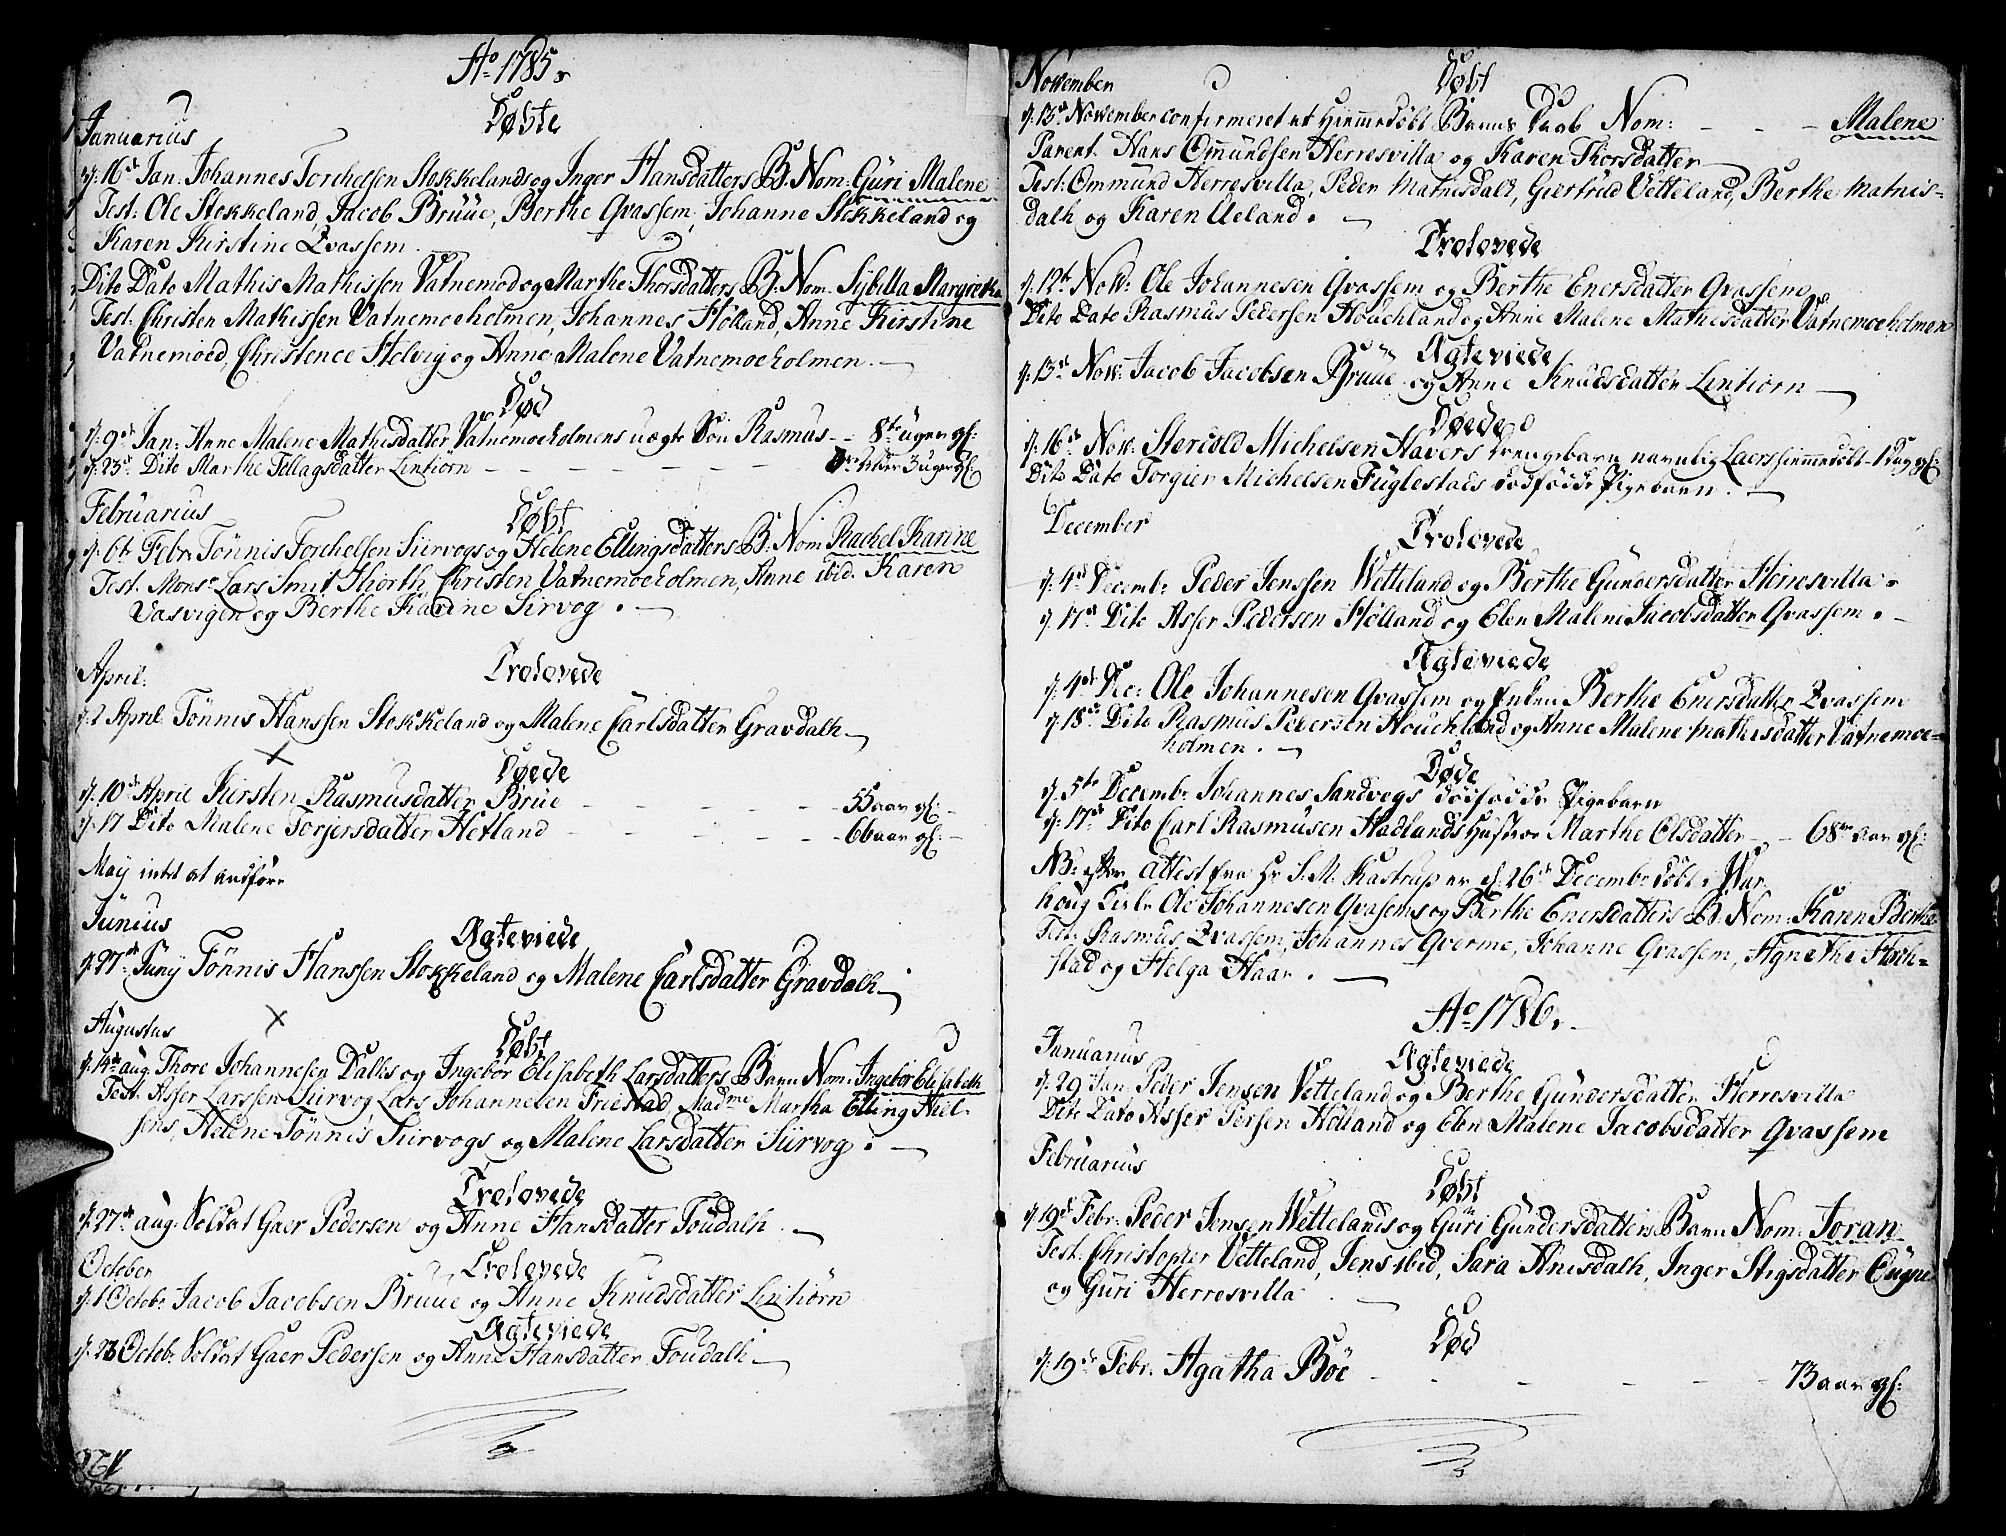 Ao 1785.
Døbte
Januarius
d: 16de Jan: Johannes Torchelsen Stokkelands og Inger Hansdatters B: Nom: Guri Malene
Test: Ole Stokkeland, Jacob Brüüe, Berthe Qvassem, Johanne Stokkeland og
Karen Kirstine Qvassem.
Dito Dato Mathis Mathissen Vatnemod og Marthe Thorsdatters B: Nom: Sybilla Margretha
Test: Christen Mathissen Vatnemoeholmen, Johannes Hølland, Anne Kirstine
Vatnemoed, Christence Helvig og Anne Malene Vatnemoeholmen.
Død
d: 9de Jan: Anne Malene Mathisdatter Vatnemoeholmens uægte Søn Rasmus - - 8te uger gl:
d: 23de Dito Marthe Tellagsdatter Lintiørn - - - - - - 3 uger gl:
Februarius
Døbt
d: 6te Febr: Tönnis Torchelsen Siirvogs og Helene Ellingsdatters B: Nom: Rachel Karine
Test. Monsr Lars Smit Thorth, Christen Vatnemoeholmen, Anne ibid. Karen
Vasvigen og Berthe Karine Sirvog.
April: Trolovede
d: 2 April Tönnis Hanssen Stokkeland og Malene Carlsdatter Gravdalh
Døede
d: 10de April Kirsten Rasmusdatter Brüe - - - - - 55 aar gl:
d: 17 Dito Malene Torjersdatter Hetland - - - - - 66 aar gl:
May intet at andføre
Junius
Ægteviede
d: 27de Junij Tönnis Hanssen Stokkeland og Malene Carlsdatter Gravdalh
Augustus
Døbt
d: 14de aug: Thore Johannesen Dalles og Ingebor Elisabeth Larsdatters Barn Nom: Ingebor Elisabeth
Test: Asser Larssen Siirvog, Lars Johannesen Friestad, Madme Martha Elling Niel-
sens, Helene Tönnis Siirvogs og Malene Larsdatter Siirvog.
Trolovede
d: 27de aug: Soldat Gaer Pedersen og Anne Hansdatter Foudalh
October
Trolovede
d: 1 Octobr Jacob Jacobsen Brüüe og Anne Knudsdatter Lintiörn
Ægteviede
d: 23 Octobr Soldat Gaer Pedersen og Anne Hansdatter Foudalh
November
Døbt
d: 13de November confirmeret et Hiemmedøbt Barns Daab Nom: - - - Malene
Parent. Hans Omundsen Herresvilla og Karen Thorsdatter
Test: Ommund Herresvilla, Peder Matnisdalh, Giertrud Vetteland, Berthe Matnis-
dalh og Karen Ueland.
Trolovede
d: 12te Nov: Ole Johannesen Qvassem og Berthe Enersdatter Qvassem
Dito Dato Rasmus Pedersen Houchland og Anne Malene Mathisdatter Vatnemoeholmen
Ægteviede
d: 13de Nov: Jacob Jacobsen Brüüe og Anne Knudsdatter Lintiörn
Døede
d: 16de Nov: Stercold Michelsen Havers Drengebarn navnlig Laers hiemmedøbt - 1 Dag gl:
Dito Dato Torgier Michelsen Fuglestads dødfødde Pigebarn.
December
Trolovede
d: 4de Decemb: Peder Jenssen Vetteland og Berthe Gundersdatter Herresvilla.
d: 17de Dito Asser Pedersen Hølland og Elen Malene Jacobsdatter Qvassem.
Ægteviede
d: 4de Dec: Ole Johannesen Qvassem og Enken Berthe Enersdatter Qvassem
d: 18de Dito Rasmus Pedersen Houchland og Anne Malene Mathisdatter Vatnemoe-
holmen.
Døde
d: 5te Decemb: Johannes Sandvegs dødfødde Pigebarn
d: 17de Dito Carl Rasmusen Hadlands Hustroe Marthe Olsdatter - - 68 aar gl:
NB: efter attest fra Hr S. M. Kastrup er d: 26de Decembr døbt i War
houg Kirke Ole Johannesen Qvassems og Berthe Enersdatters B: Nom: Karen Berthe
Test: Rasmus Qvassem, Johannes Qverme, Johanne Qvassem, Agnethe Hoch-
stad og Helga Haar.
Ao 1786.
Januarius
Ægteviede
d: 29 Jan: Peder Jensen Vetteland og Berthe Gundersdatter Herresvilla
Dito Dato Asser Persen Hølland og Elen Malene Jacobsdatter Qvassem
Februarius
Døbt
d: 19de Febr: Peder Jensen Vettelands og Guri Gundersdatters Barn Nom: Joran
Test: Christopher Vetteland, Jens ibid, Sara Anisdalh, Inger Stigsdatter Eügne
og Guri Herresvilla
Død
d: 19de Febr: Agatha Böe - - - - - 73 aar gl: